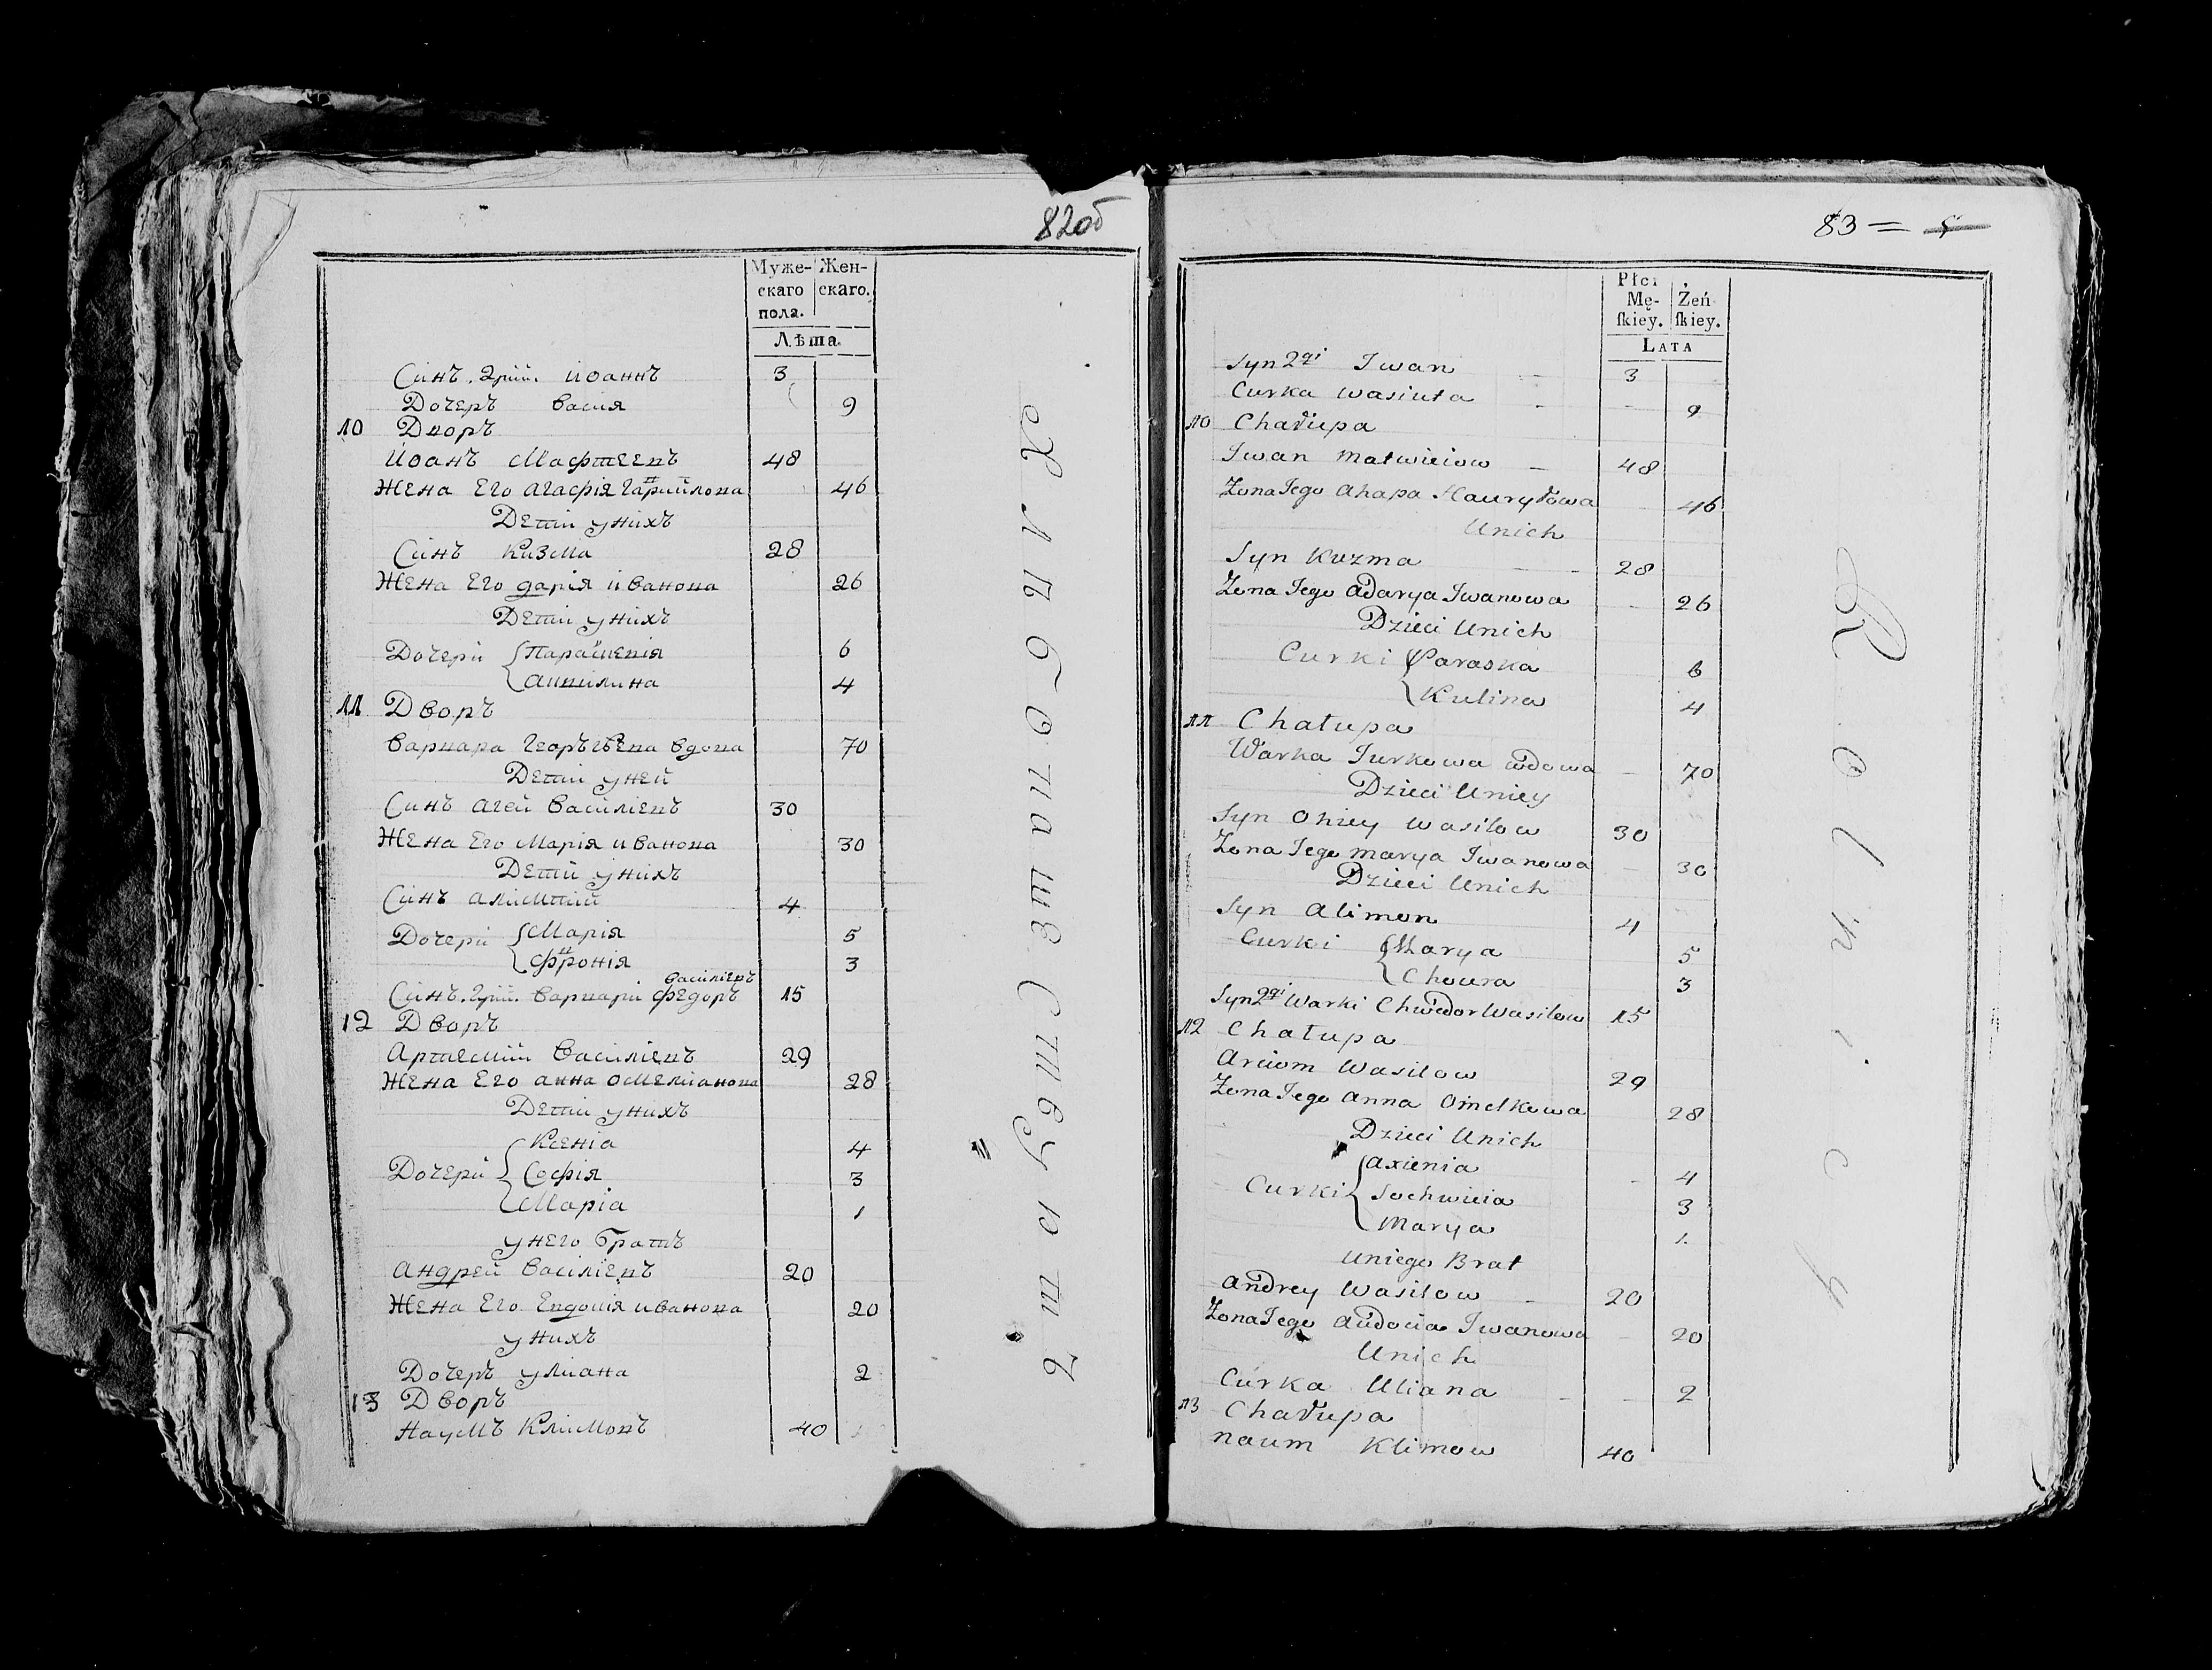 82об
Муже- Жен-
скаго скаго.
пола.
Лѣта.
Синъ. 2рий. Иоаннъ 3
Дочеръ Васия 9
10 Дворъ
Иоанъ Матфеевъ 48
Жена Его Агафія Гаврийлова 46
Детий унихъ
Синъ Кизма 28
Жена Его дарія ивановa 26
Детий унихъ
Дочерий Параскевія 6
Акилина 4
11 Дворъ
Варвара Георъгѣва вдова 70
Детий уней
Синъ Агей Василіевъ 30
Жена Его Марія ивановa 30
Детий унихъ
Синъ Алимпий 4
Дочерий Марія 5
Февронія 3
Василіевъ
Синъ. 2рий. Варварий Федоръ 15
12 Дворъ
Артемий Василіевъ 29
Жена Его анна омелианова 28
Детий унихъ
Ксенія 4
Дочерий Софія 3
Марія 1
унего братъ
Андрей Василіевъ 20
Жена Его Евдокія ивановa 20
унихъ
Дочеръ улиана 2
13 Дворъ
Наумъ Климовъ 40
83 = 5
Płci
Mę- Żeń
ſkiey. ſkiey.
LATA
Syn 2gi Iwan 3
Curka Wasiuta 9
10 Chałupa
Iwan Matwieiow 48
Zona Iego Ahapa Hauryłowa 46
Unich
Syn Kuzma 28
Zona Iego Adarya Iwanowa 26
Dzieci Unich
Curki Paraska 6
Kulina 4
11 Chałupa
Warka Iurkowa wdowa 70
Dzieci Uniey
Syn Ohiey Wasilow 30
Zona Iego Marya Iwanowa 30
Dzieci Unich
Syn Alimon 4
Curki Marya 5
Choura 3
Syn 2gi Warki Chwedor Wasilow 15
12 Chałupa
Arciom Wasilow 29
Zona Iego Anna Omelkowa 28
Dzieci Unich
Axienia 4
Curki Sochwieia 3
Marya 1.
Uniego Brat
Andrey Wasilow 20
Zona Iego Audocia Iwanowa 20
Unich
Curka Uliana 2
13 Chałupa
Naum Klimow 40
R o l n i c y